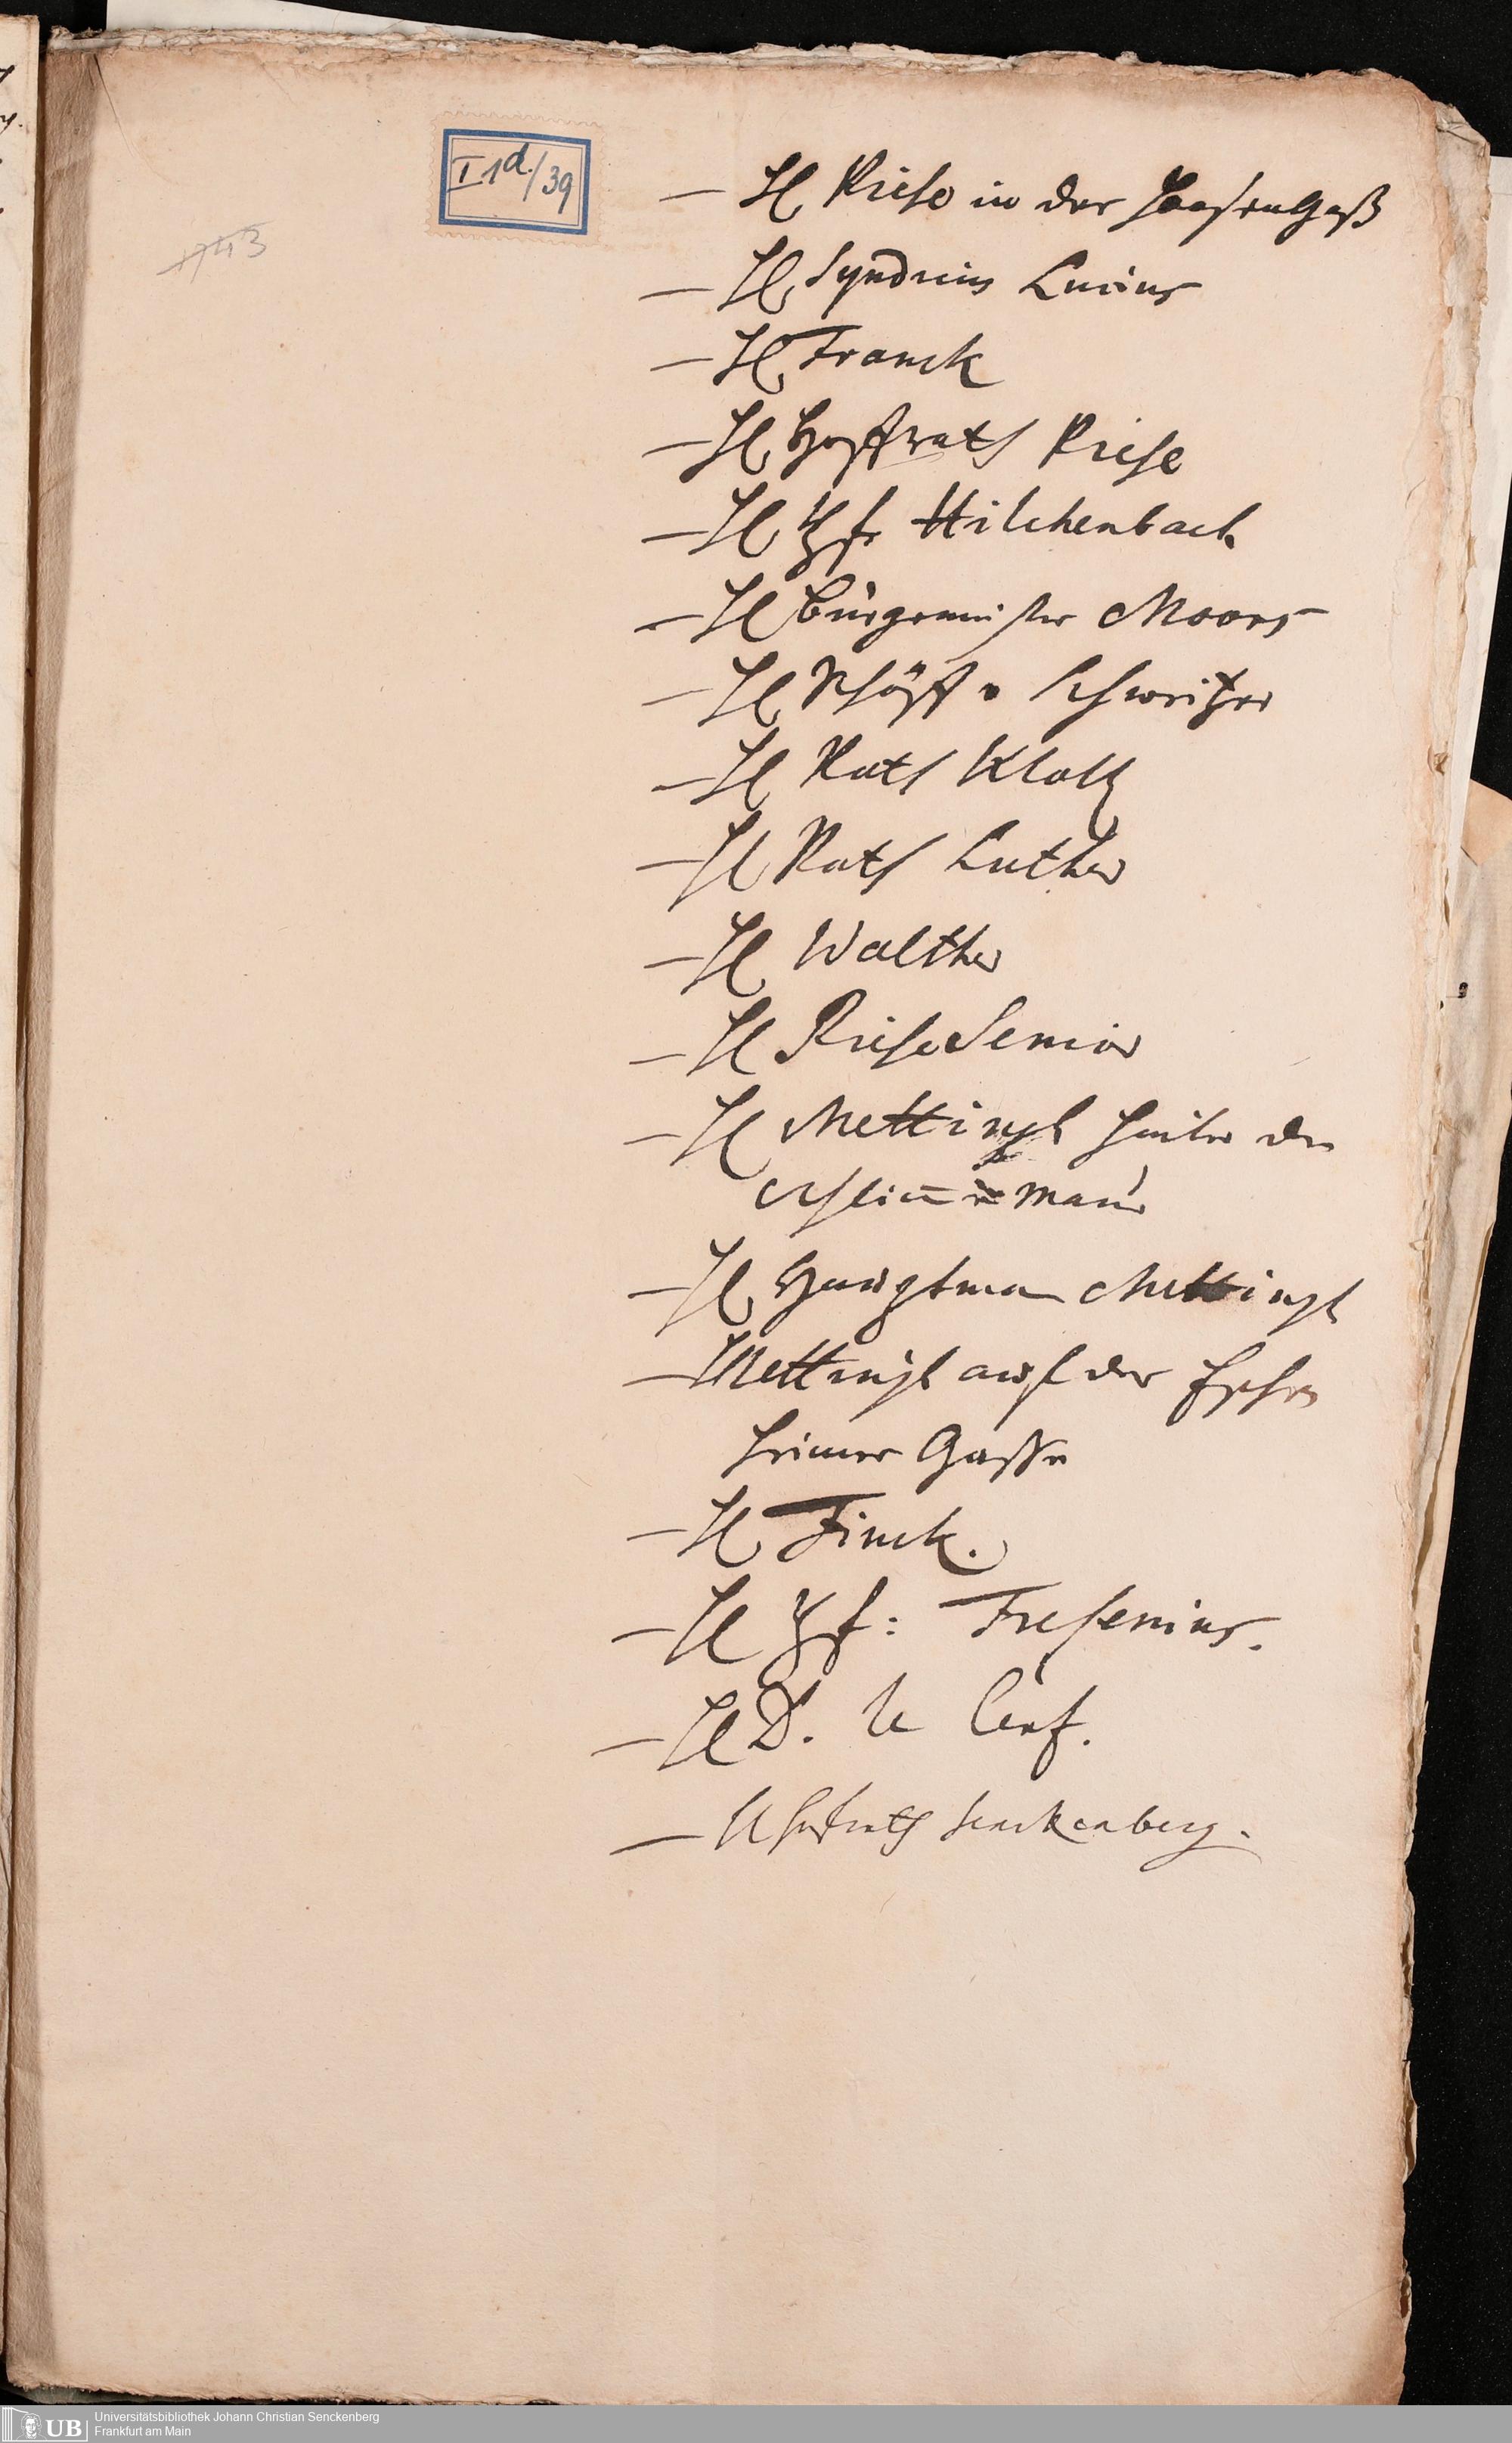 I 1d/39
1743
– H Riese in der HaasenGaß
– H Syndicus Lucius
– H Franck
– H Hoffrath Riese
– H Pf. Hilchenbach
– H Bürgermeister Moors
– H Schöff v Schweitzer
– H Rath Klotz
– H Rath Luther
– H Walther
– H Riese Senior
– H Mettingh hinter der
Mauer
– H Hauptman Mettingh
– Mettingh auf der Eschers
heimer Gasse
– H Finck.
– H Pf: Fresenius.
– H D. le Cerf.
– H Hofrath Senckenberg.
UB
Universitätsbibliothek Johann Christian Senckenberg
Frankfurt am Main